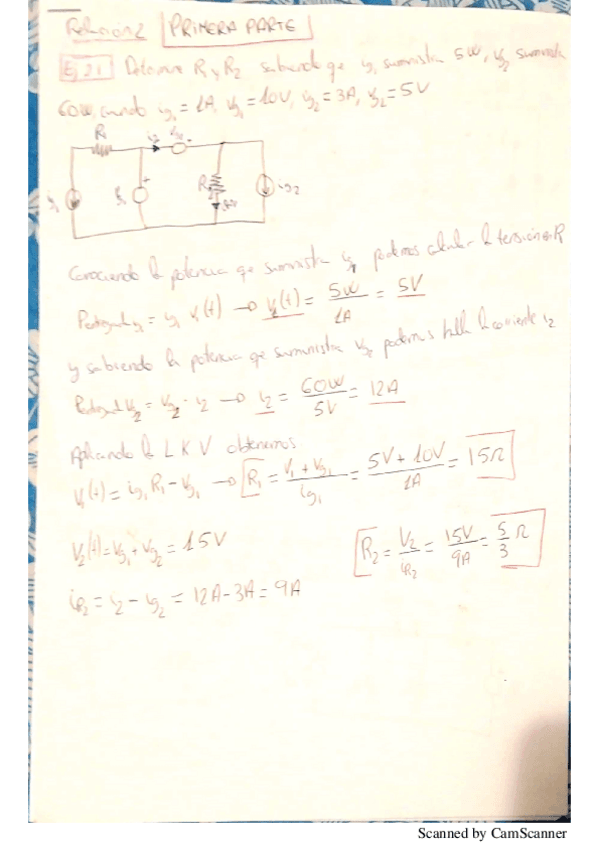 Relación 2 PRIMERA PARTE
Ej 2.1 Determine R₁ y R₂ sabiendo que ig₁ suministra 5W, Vg₂ suministra
60W, cuando ig₁ = 1A, Vg₁ = 10V, ig₂ = 3A, Vg₂ = 5V
R₁ i₂ Vg₂
R₂ ig₂
Conociendo la potencia que suministra ig₁ podemos calcular la tensión en
V₁(t) → V₁(t) = 5W/1A = 5V
y sabiendo la potencia que suministra Vg₂ podemos hallar la corriente i₂
Vg₂ = Vg₂ · i₂ → i₂ = 60W/5V = 12A
Aplicando la LKV obtenemos
V₁(t) = ig₁R₁ - Vg₁ → R₁ = (V₁ + Vg₁)/ig₁ = (5V + 10V)/1A = 15Ω
V₂(t) = Vg₁ + Vg₂ = 15V
R₂ = V₂/iR₂ = 15V/9A = 5/3 Ω
iR₂ = i₂ - ig₂ = 12A - 3A = 9A
Scanned by CamScanner